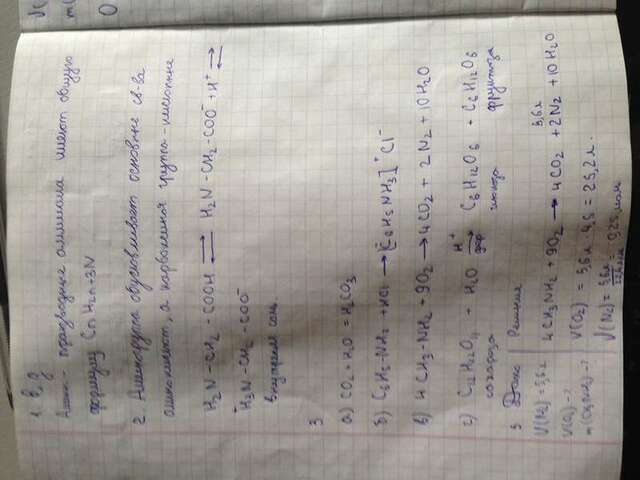 1. в, д
Амины - производные аммиака имеют общую
формулу CnH2n+3N
2. Аминогруппа обуславливает основные св-ва
аминокислот, а карбоксильная группа - кислотные
H2N-CH2-COOH ⇌ H2N-CH2-COO⁻ + H⁺ ⇌
H3N-CH2-COO⁻
Внутренняя соль
3
а) CO2 + H2O = H2CO3
б) C6H5-NH2 + HCl → [C6H5NH3]⁺Cl⁻
в) 4CH3-NH2 + 9O2 → 4CO2 + 2N2 + 10H2O
г) C12H22O11 + H2O → C6H12O6 + C6H12O6
сахароза глюкоза фруктоза
5 Дано: Решение
V(N2) = 5,6л 4CH3NH2 + 9O2 → 4CO2 + 2N2 + 10H2O
V(O2) - ? V(O2) = 5,6л · 4,5 = 25,2 л.
m(CH3NH2) - ? V(N2) = = 0,25 моль
V(
m(
0